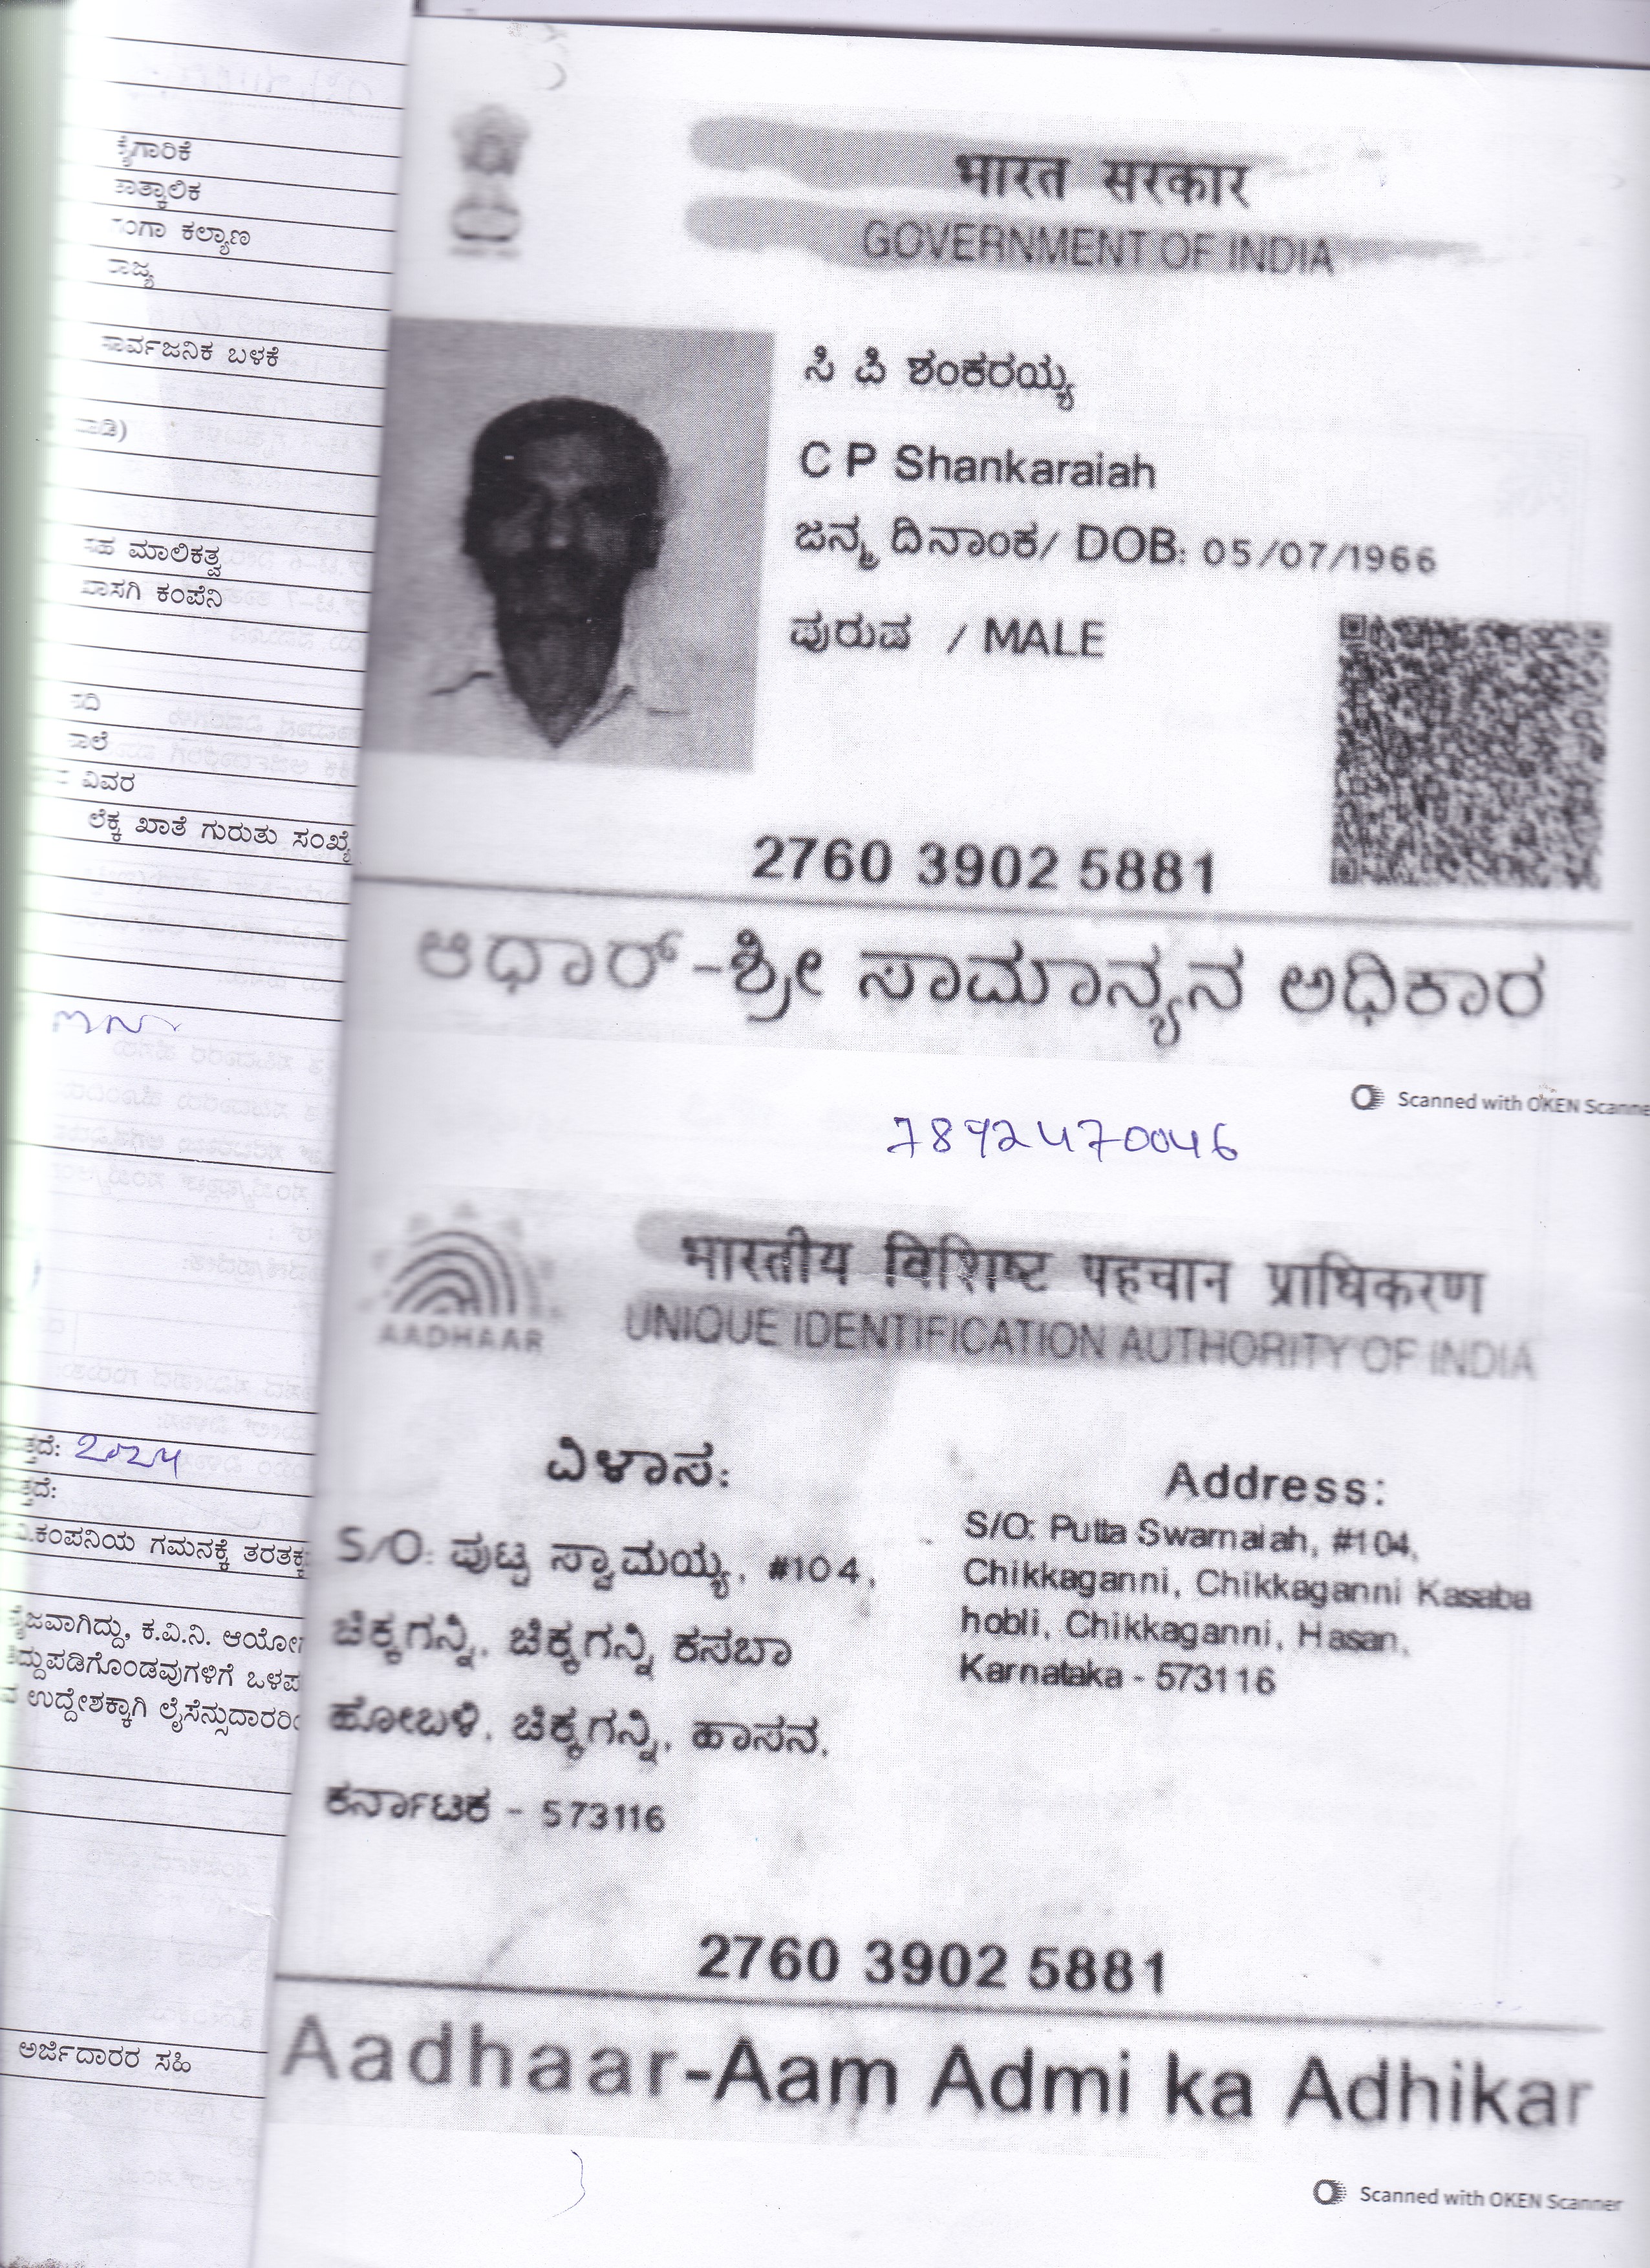 ಕೈಗಾರಿಕೆ
ತಾತ್ಕಾಲಿಕ
ಗಂಗಾ ಕಲ್ಯಾಣ
ರಾಜ್ಯ
ಸಾರ್ವಜನಿಕ ಬಳಕೆ
ಸಹ ಮಾಲಿಕತ್ವ
ಖಾಸಗಿ ಕಂಪೆನಿ
ವಿವರ
ಲೆಕ್ಕ ಖಾತೆ ಗುರುತು ಸಂಖ್ಯೆ
2024
ಕಂಪನಿಯ ಗಮನಕ್ಕೆ
ಕ.ವಿ.ನಿ.
ಉದ್ದೇಶಕ್ಕಾಗಿ
ಅರ್ಜಿದಾರರ ಸಹಿ
भारत सरकार
GOVERNMENT OF INDIA
ಸಿ ಪಿ ಶಂಕರಯ್ಯ
C P Shankaraiah
ಜನ್ಮ ದಿನಾಂಕ/ DOB: 05/07/1966
ಪುರುಷ / MALE
2760 3902 5881
ಆಧಾರ್-ಶ್ರೀ ಸಾಮಾನ್ಯನ ಅಧಿಕಾರ
Scanned with OKEN Scanne
7892470046
भारतीय विशिष्ट पहचान प्राधिकरण
AADHAAR
UNIQUE IDENTIFICATION AUTHORITY OF INDIA
ವಿಳಾಸ:
S/O: ಪುಟ್ಟ ಸ್ವಾಮಯ್ಯ, #104,
ಚಿಕ್ಕಗನ್ನಿ, ಚಿಕ್ಕಗನ್ನಿ ಕಸಬಾ
ಹೋಬಳಿ, ಚಿಕ್ಕಗನ್ನಿ, ಹಾಸನ,
ಕರ್ನಾಟಕ - 573116
Address:
S/O: Putta Swamaiah, #104,
Chikkaganni, Chikkaganni Kasaba
hobli, Chikkaganni, Hasan,
Karnataka - 573116
2760 3902 5881
Aadhaar-Aam Admi ka Adhikar
Scanned with OKEN Scanner